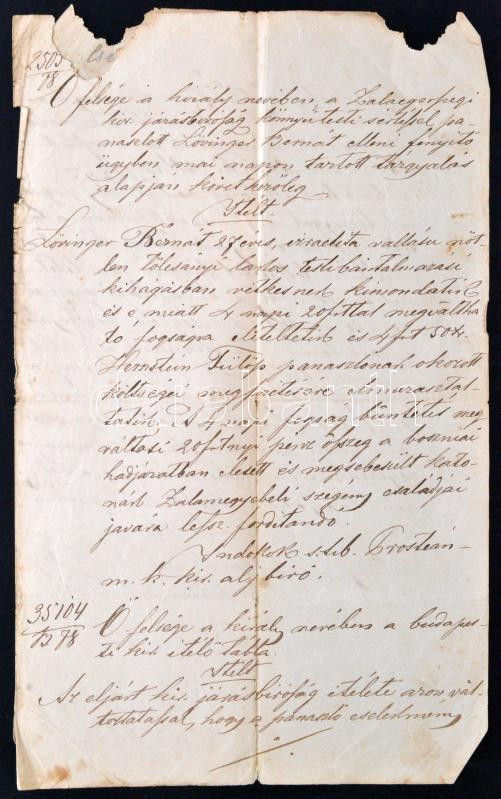 2505
78
Ő felsége a király nevében, a Zalaegerszegi
kir. járásbíróság könnyű testi sértéssel pa-
naszlott Lövinger Bernát elleni fenyitő
ügyben mai napon tartott tárgyalás
alapján következőleg
Itélt.
Lövinger Bernát 27 éves, izraelita vallásu nőt-
len tölcsányi lakos testi bántalmazási
kihágásban vétkesnek kimondatik
és e miatt 4 napi 20 fittal megváltha
tó fogságra itéltetik és 4 frt 50 kr.
Hernstein Fülöp panaszlónak okozott
költségei megfizetésére elmarasztal-
tatik, Es 4 napi fogság büntetés meg
váltási 20 fitnyi pénz összeg a boszniai
hadjáratban elesett és megsebesült kato-
nák Zalamegyebeli szegény családjai
javára lesz forditandó.
Indokok s.t.b.
m. k. kir. alj biró.
35104
78
Ő felsége a király nevében a budapes-
ti kir. itélő tábla
Itélt
Az eljárt kir. járásbíróság itélete azon vál-
toztatással, hogy a panaszló cselekmény